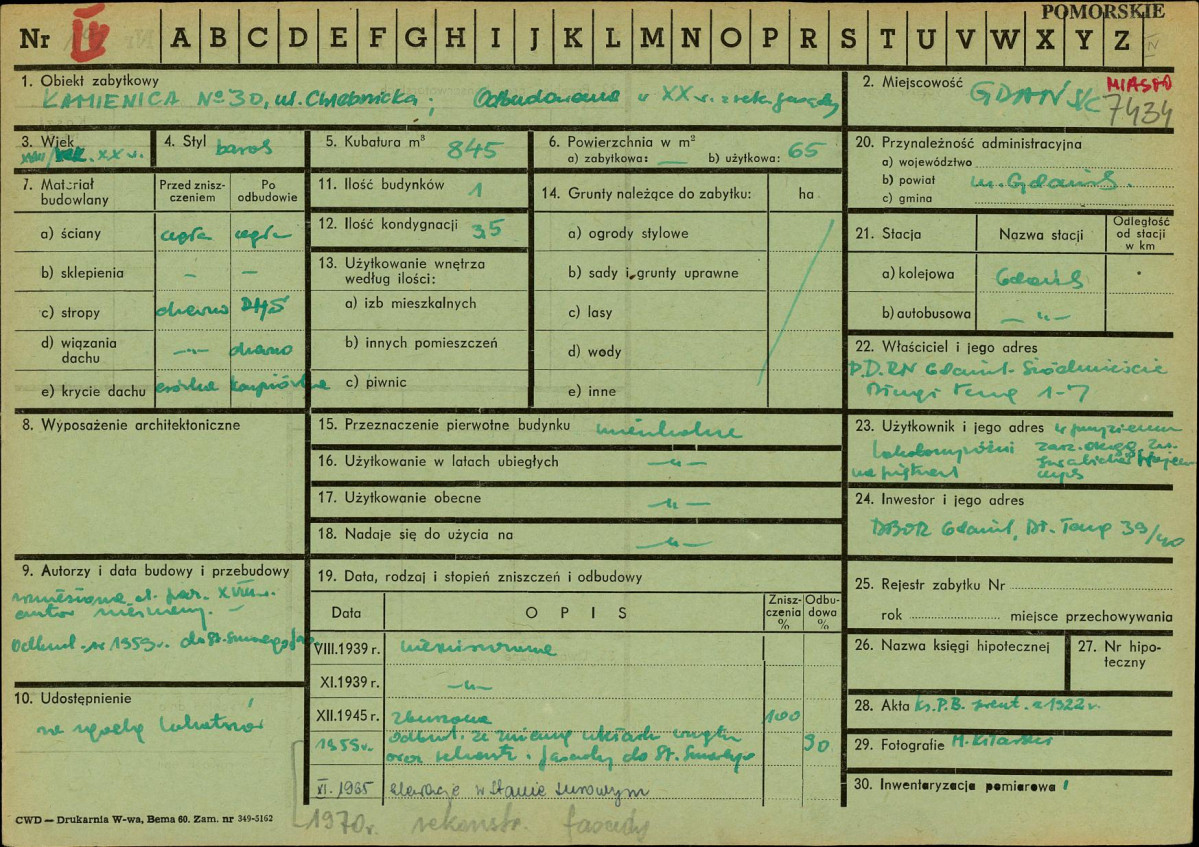 POMORSKIE
Nr IV A B C D E F G H I J K L M N O P R S T U V W X Y Z
1. Obiekt zabytkowy
KAMIENICA Nº 30, ul. Chlebnicka; Odbudowana w XX w. z rek. fasady
2. Miejscowość GDAŃSK
MIASTO
7434
3. Wiek
XVIII/ XX w.
4. Styl barok
5. Kubatura m³ 845
6. Powierzchnia w m²
a) zabytkowa: — b) użytkowa: 65
7. Materiał budowlany
Przed zniszczeniem
Po odbudowie
a) ściany cegła cegła
b) sklepienia — —
c) stropy drewno DMS
d) wiązania dachu —„— drewno
e) krycie dachu esówka karpiówka
8. Wyposażenie architektoniczne
9. Autorzy i data budowy i przebudowy
wzniesiona
autor nieznany.
Odbud. w 1955 r. do st. surowego
10. Udostępnienie
za zgodą lokatorów
11. Ilość budynków 1
12. Ilość kondygnacji 3,5
13. Użytkowanie wnętrza według ilości:
a) izb mieszkalnych
b) innych pomieszczeń
c) piwnic
14. Grunty należące do zabytku: ha
a) ogrody stylowe
b) sady i grunty uprawne
c) lasy
d) wody
e) inne
15. Przeznaczenie pierwotne budynku mieszkalne
16. Użytkowanie w latach ubiegłych —„—
17. Użytkowanie obecne —„—
18. Nadaje się do użycia na —„—
19. Data, rodzaj i stopień zniszczeń i odbudowy
Data
OPIS
Zniszczenia %
Odbudowa %
VIII.1939 r. nienaruszona
XI.1939 r. —„—
XII.1945 r. zburzona 100
1955 r. Odbud. ze zmianą układu wnętrz 90
oraz rekonstr. fasady do st. surowego
VI. 1965 elewacje w stanie surowym
1970 r. rekonstr. fasady
20. Przynależność administracyjna
a) województwo
b) powiat m. Gdańsk
c) gmina
21. Stacja
Nazwa stacji
Odległość od stacji w km
a) kolejowa Gdańsk
b) autobusowa —„—
22. Właściciel i jego adres
P.D.RN Gdańsk-Śródmieście
Długi Targ 1-7
23. Użytkownik i jego adres w przyziemiu
na piętrach
24. Inwestor i jego adres
DBOR Gdańsk, Dł. Targ 39/40
25. Rejestr zabytku Nr
rok miejsce przechowywania
26. Nazwa księgi hipotecznej
27. Nr hipoteczny
28. Akta Ks. P.B. 1922 r.
29. Fotografie M. Kilarski
30. Inwentaryzacja pomiarowa
CWD — Drukarnia W-wa, Bema 60. Zam. nr 349-5162